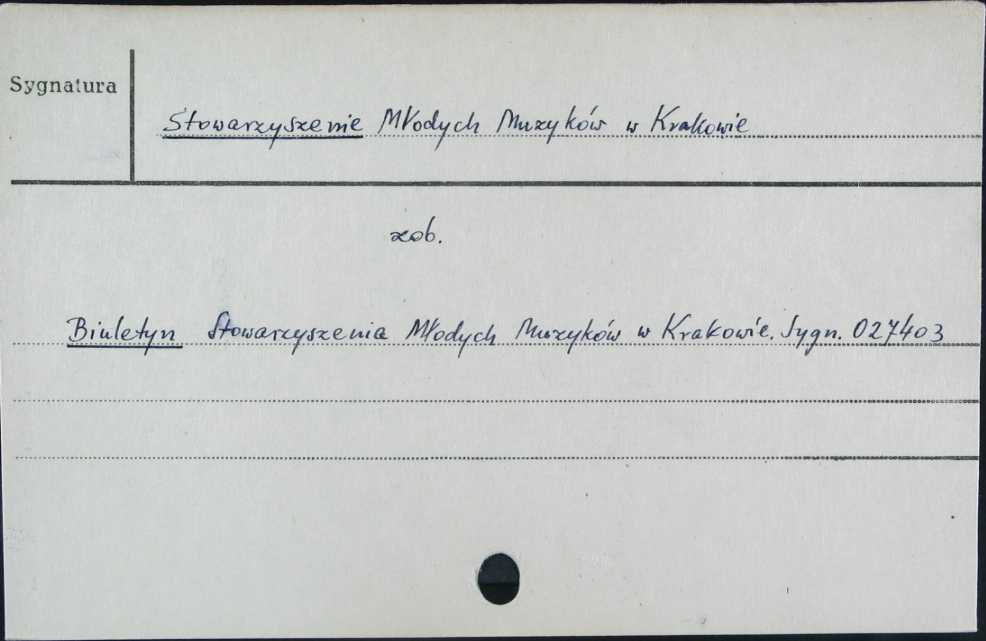 Sygnatura
Stowarzyszenie Młodych Muzyków w Krakowie
zob.
Biuletyn Stowarzyszenia Młodych Muzyków w Krakowie. Sygn. 027403